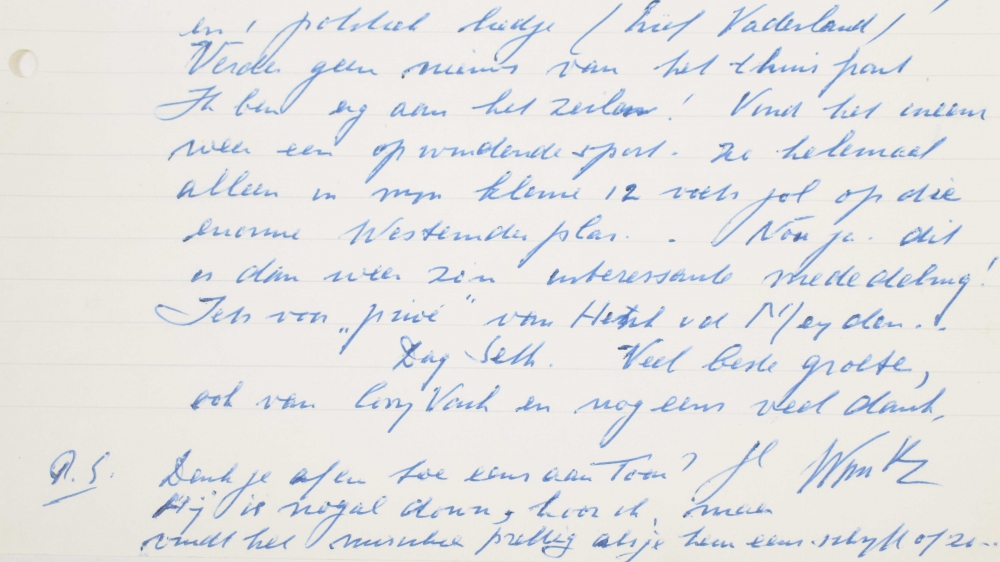 en 1 politiek liedje (Lief Vaderland)
Verder geen nieuws van het thuisfront
Ik ben erg aan het zeilen! Vind het ineens
weer een opwindende sport. Zo helemaal
alleen in mijn kleine 12 voets jol op die
enorme Westeinder plas. . Nou ja. dit
is dan weer zo'n interessante mededeling!
Iets voor „privé" van Henk vd Meyden..
Dag Seth. Veel beste groeten,
ook van Cony Vonk en nog eens veel dank,
P.S. Denk je af en toe eens aan Toon? Je Wim K
Hij is nogal down, hoor ik, maar
vindt het misschien prettig als je hem eens schrijft of zo...